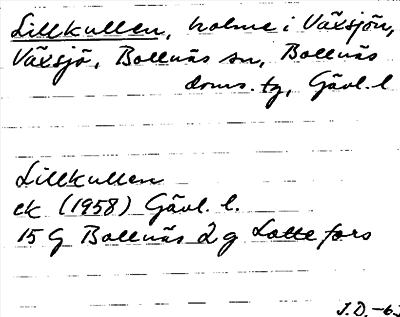 Lillkullen, holme i Växsjön,
Växsjö, Bollnäs sn, Bollnäs
doms. tg, Gävl. l
Lillkullen
ek (1958) Gävl. l.
15 G Bollnäs 2 g Lottefors
J.D. -63